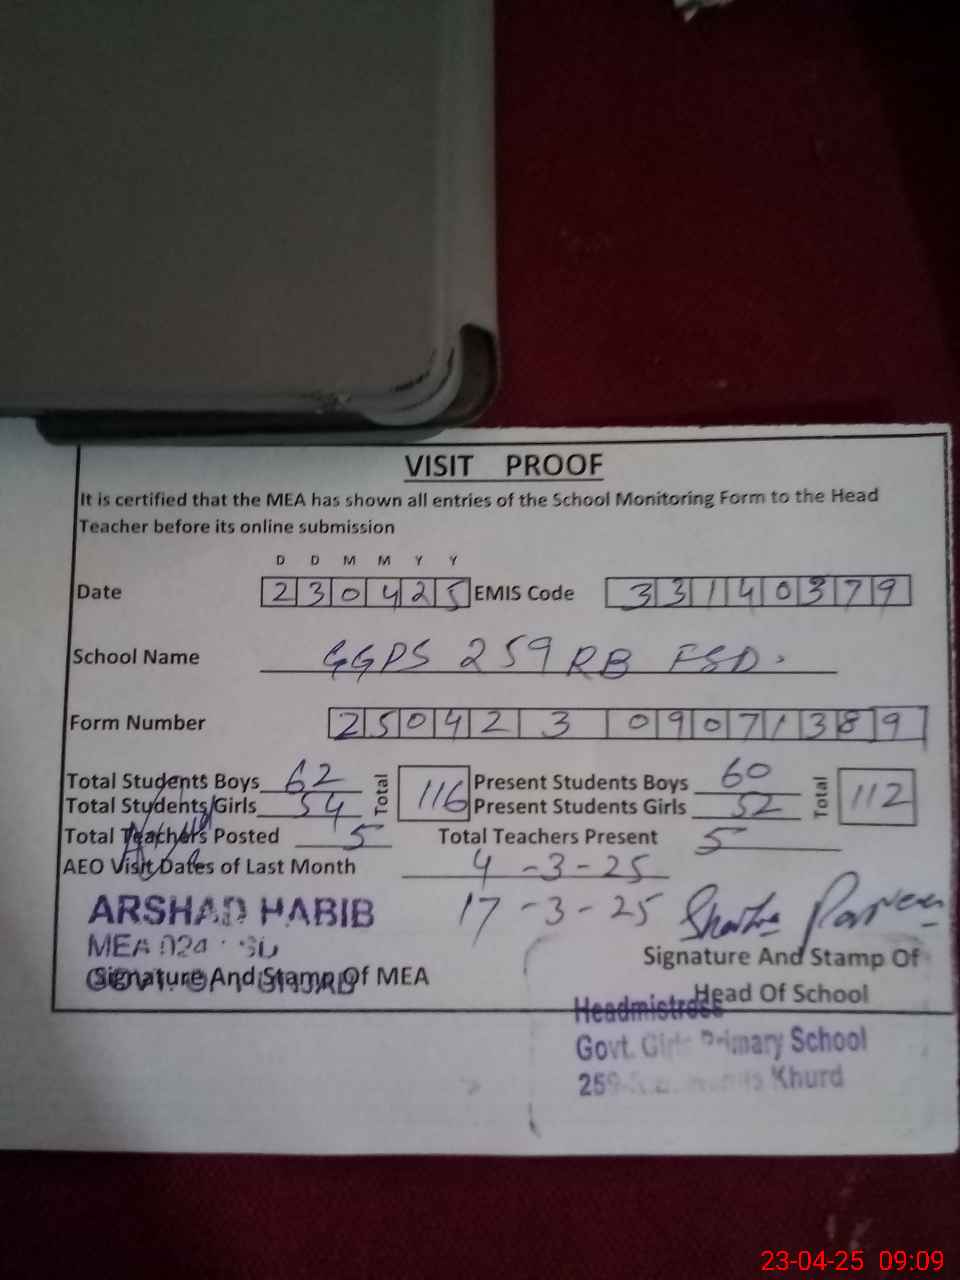 VISIT PROOF
It is certified that the MEA has shown all entries of the School Monitoring Form to the Head
Teacher before its online submission
D D M M Y Y
Date 230425 EMIS Code 33140379
School Name GGPS 259 RB FSD.
Form Number 25042309071389
Total Students Boys 62 Total 116 Present Students Boys 60 Total 112
Total Students Girls 54 Present Students Girls 52
Total Teachers Posted 5 Total Teachers Present 5
AEO Visit Dates of Last Month 4-3-25
17-3-25
ARSHAD HABIB
MEA 024
Signature And Stamp Of MEA
Signature And Stamp Of
Head Of School
Headmistress
Govt. Girls Primary School
259 Khurd
23-04-25 09:09